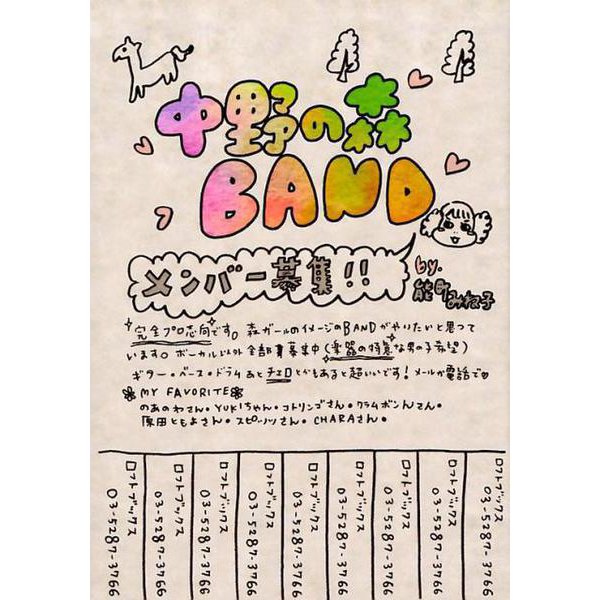 中野の森
BAND
メンバー募集!!
by.
能町みね子
完全プロ志向です。森ガールのイメージのBANDがやりたいと思って
います。ボーカル以外全部募集中(楽器の得意な男の子希望)
ギター・ベース・ドラムあとチェロとかもあると超いいです!メールか電話で♡
MY FAVORITE
のあのわさん・YUKIちゃん・コトリンゴさん・クラムボンさん・
原田ともよさん・スピッツさん・CHARAさん・
ロフトブックス 03-5287-3766
ロフトブックス 03-5287-3766
ロフトブックス 03-5287-3766
ロフトブックス 03-5287-3766
ロフトブックス 03-5287-3766
ロフトブックス 03-5287-3766
ロフトブックス 03-5287-3766
ロフトブックス 03-5287-3766
ロフトブックス 03-5287-3766